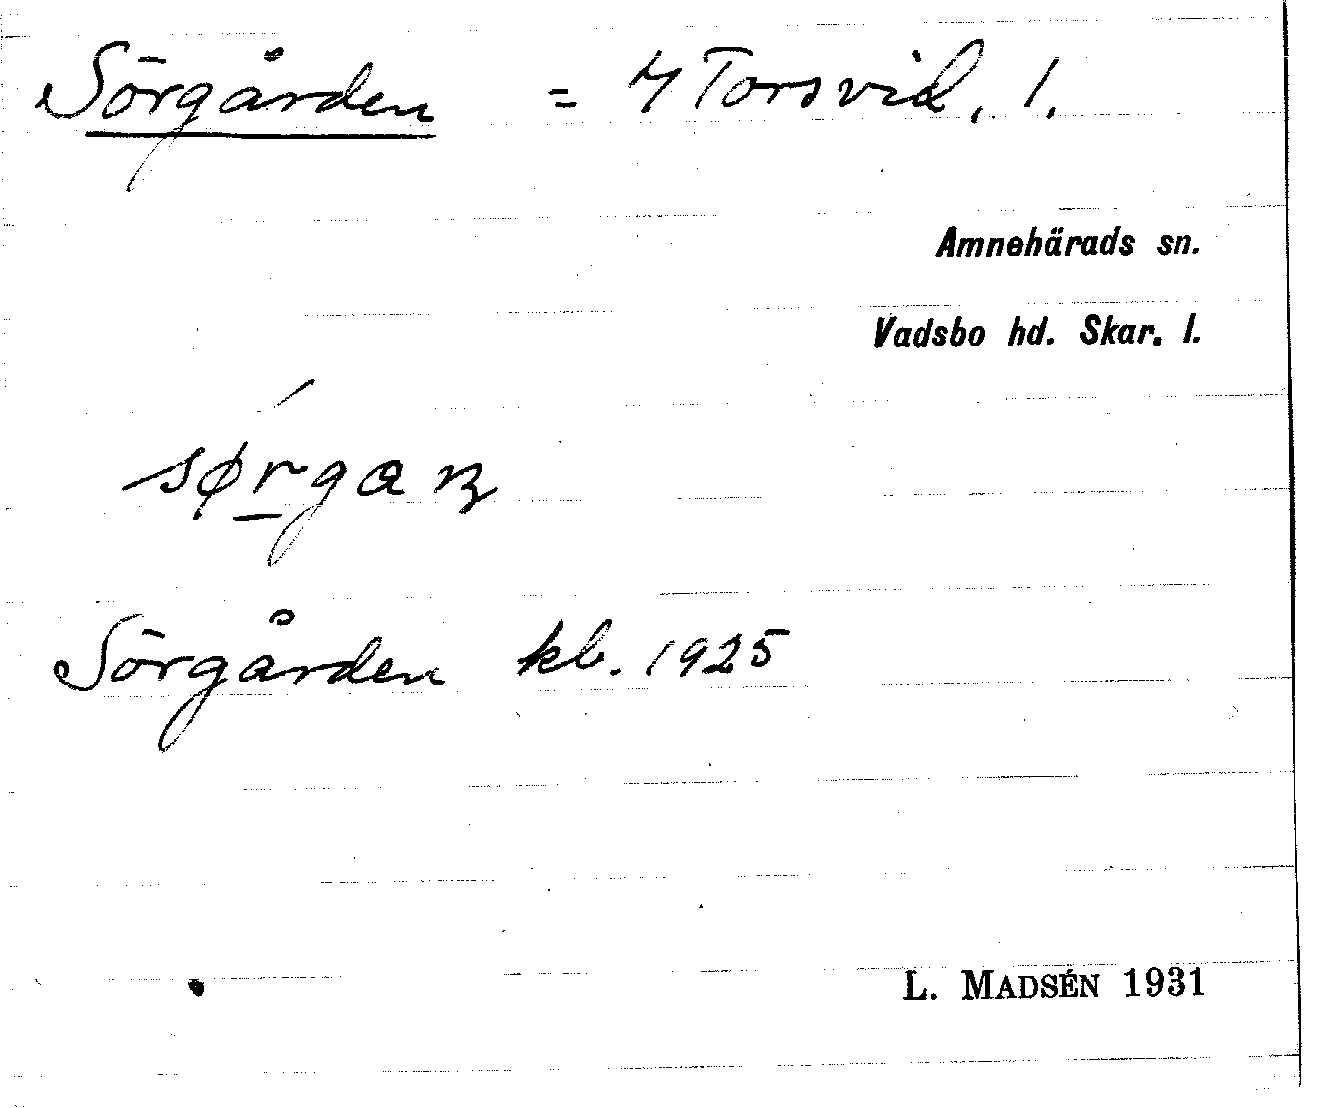 Sörgården = 4 Torsvid, 1.
Amnehärads sn.
Vadsbo hd. Skar. l.
sørgaɳ
Sörgården kb. 1925
L. MADSÉN 1931